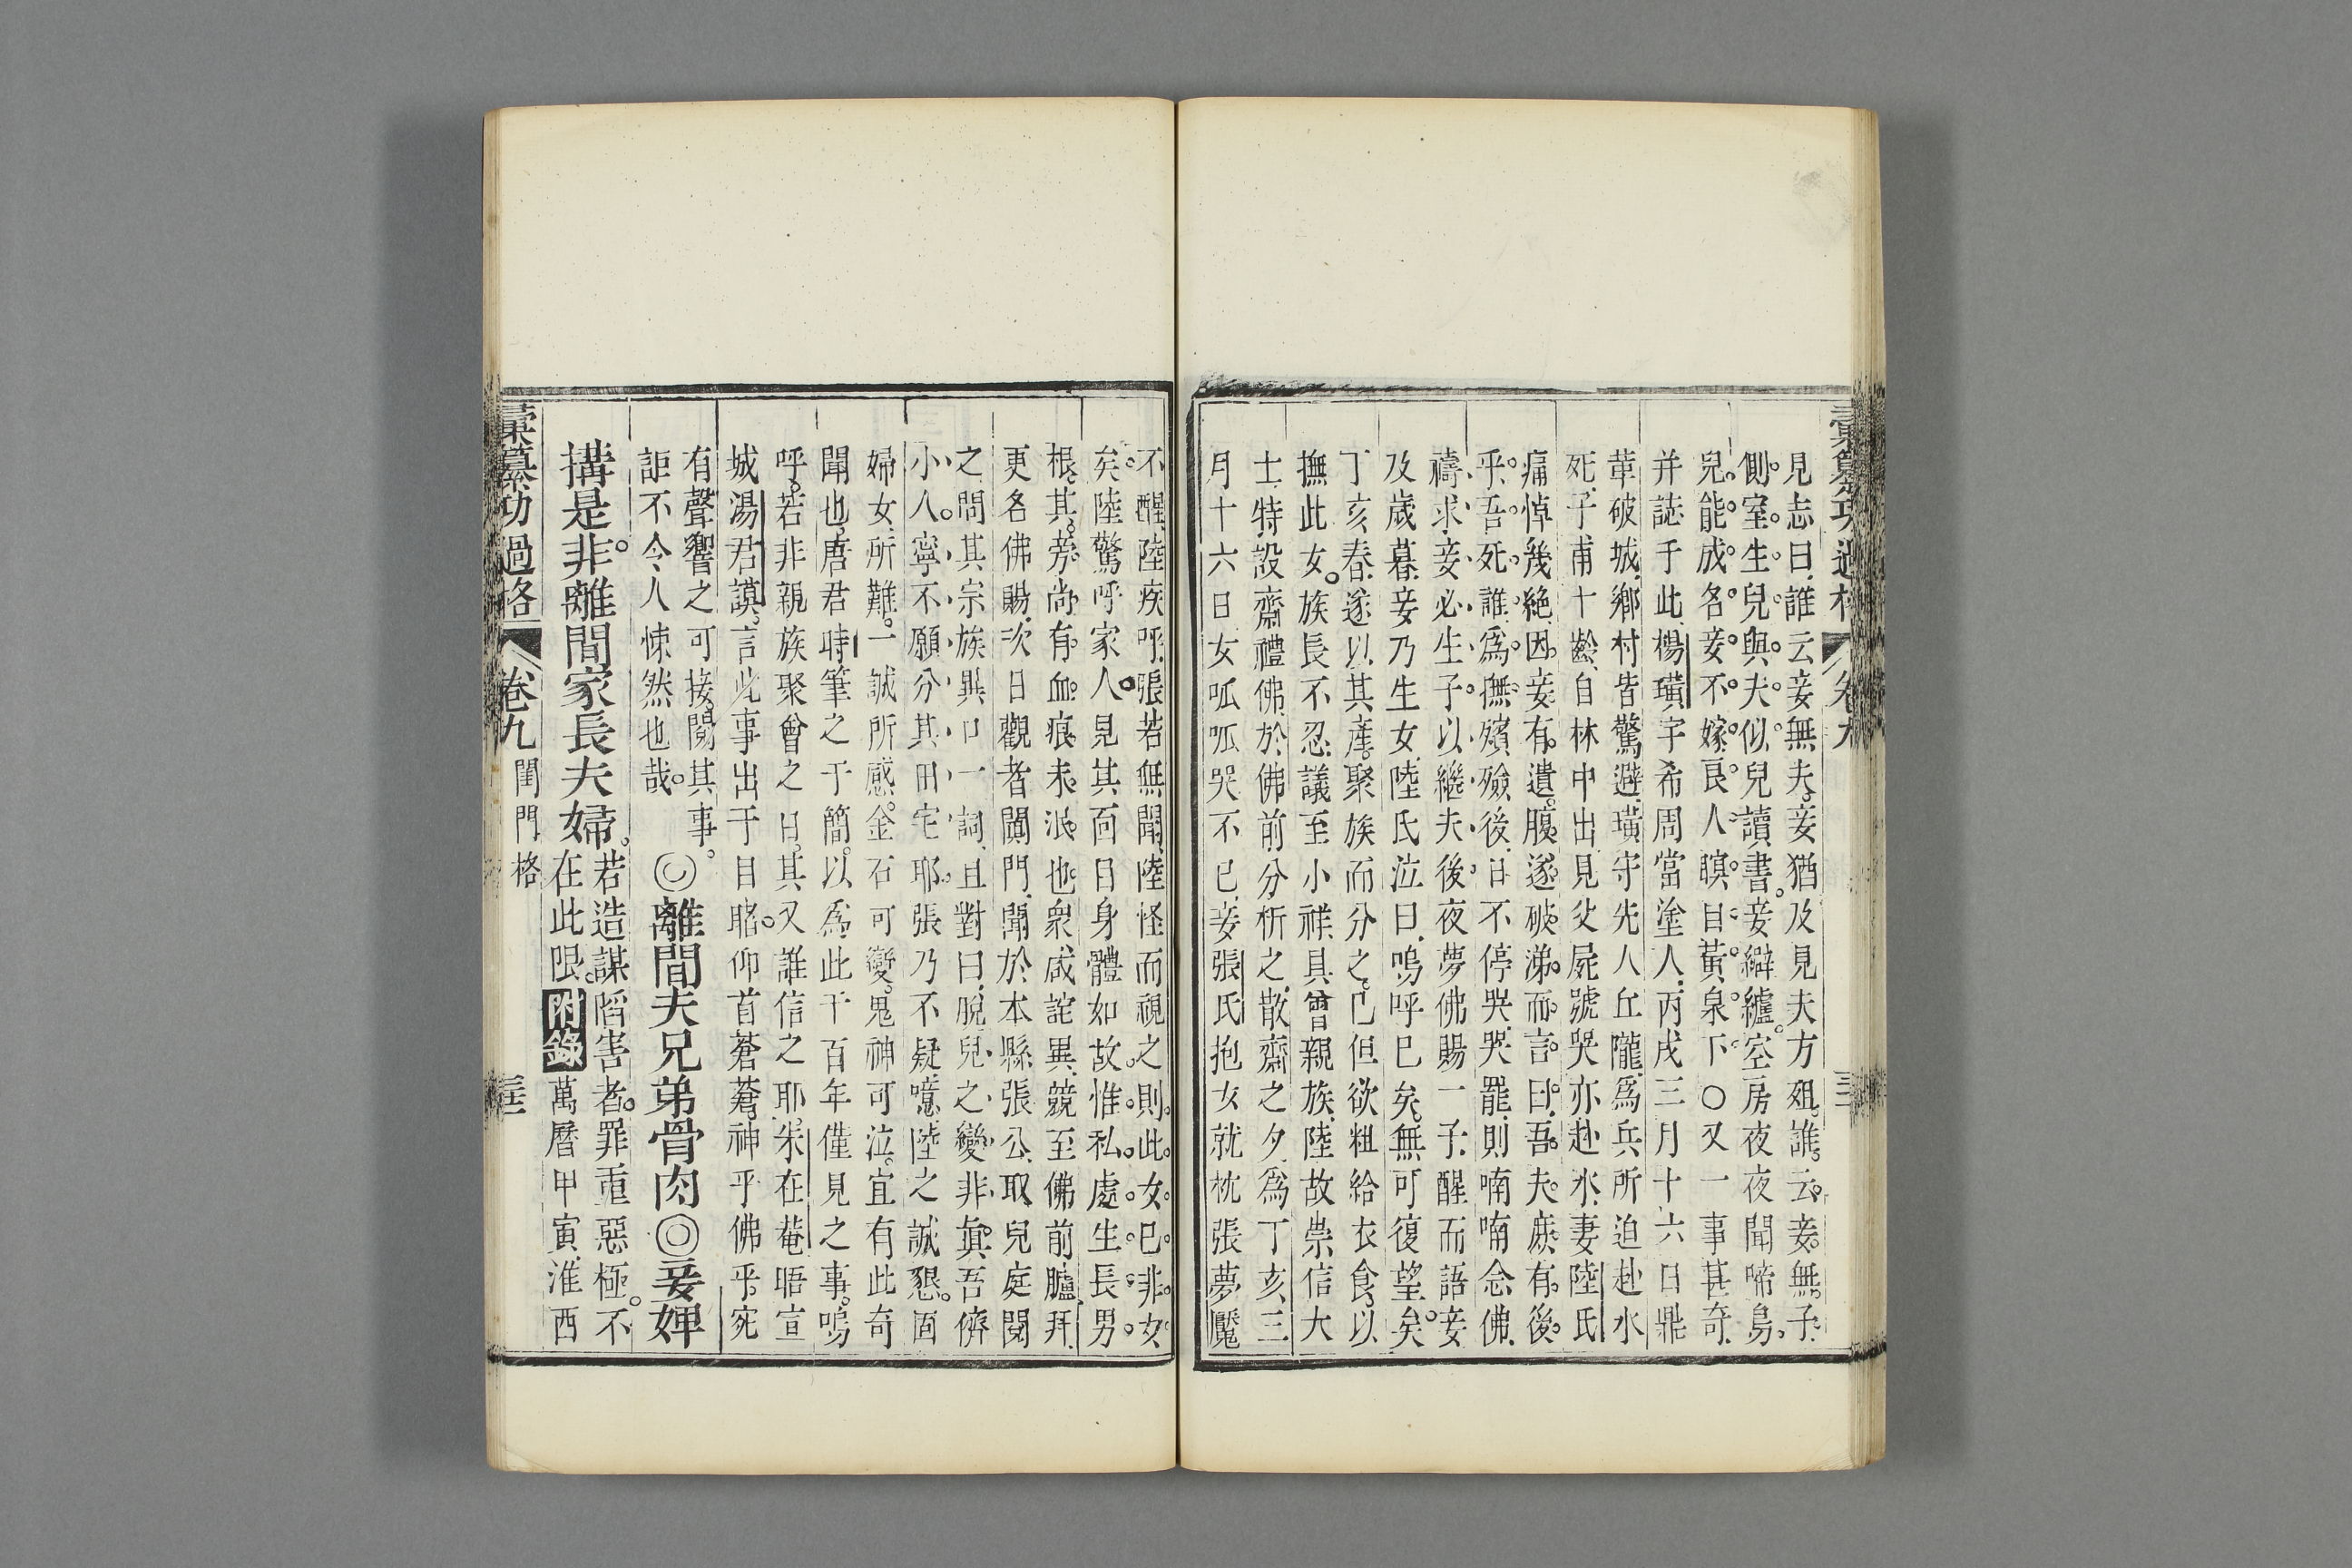 彙纂功過格 卷九
見志曰誰云妾無夫妾猶及見夫方殂誰云妾無子
側室生兒與夫似兒讀書妾緝纑空房夜夜聞啼烏
兒能成名妾不嫁良人瞑目黃泉下○又一事甚奇
并誌于此楊璜字希周當塗人丙戌三月十六日鼎
革破城鄉村皆驚避璜守先人丘隴爲兵所迫赴水
死子甫十齡自林中出見父屍號哭亦赴水妻陸氏
痛悼幾絶因妾有遺腹遂破涕而言曰吾夫庶有後
乎吾死誰爲撫殯殮後日不停哭哭罷則喃喃念佛
禱求妾必生子以繼夫後夜夢佛賜一子醒而語妾
及歲暮妾乃生女陸氏泣曰嗚呼已矣無可復望矣
丁亥春遂以其產聚族而分之已但欲粗給衣食以
撫此女族長不忍議至小祥具曾親族陸故祟信大
士特設齋禮佛於佛前分析之散齋之夕爲丁亥三
月十六日女呱呱哭不已妾張氏抱女就枕張夢魘
不醒陸疾呼張若無聞陸怪而視之則此女已非女
矣陸驚呼家人見其面目身體如故惟私處生長男
根其旁尚有血痕未泯也衆咸詫異競至佛前臚拜
更各佛賜次日觀者闐門聞於本縣張公取兒庭閱
之問其宗族異口一詞且對曰脫兒之變非眞吾儕
小人寧不願分其田宅耶張乃不疑噫陸之誠懇固
婦女所難一誠所感金石可變鬼神可泣宜有此奇
聞也唐君時筆之于簡以爲此千百年僅見之事嗚
呼若非親族聚會之日其又誰信之耶朱在菴晤宣
城湯君謨言此事出于目睹仰首蒼蒼神乎佛乎宛
有聲響之可接閱其事
詎不令人悚然也哉
◎離間夫兄弟骨肉◎妾婢
搆是非離間家長夫婦
若造謀陷害者罪重惡極不
在此限附錄萬曆甲寅淮西
彙纂功過格 卷九 閨門格 三十三